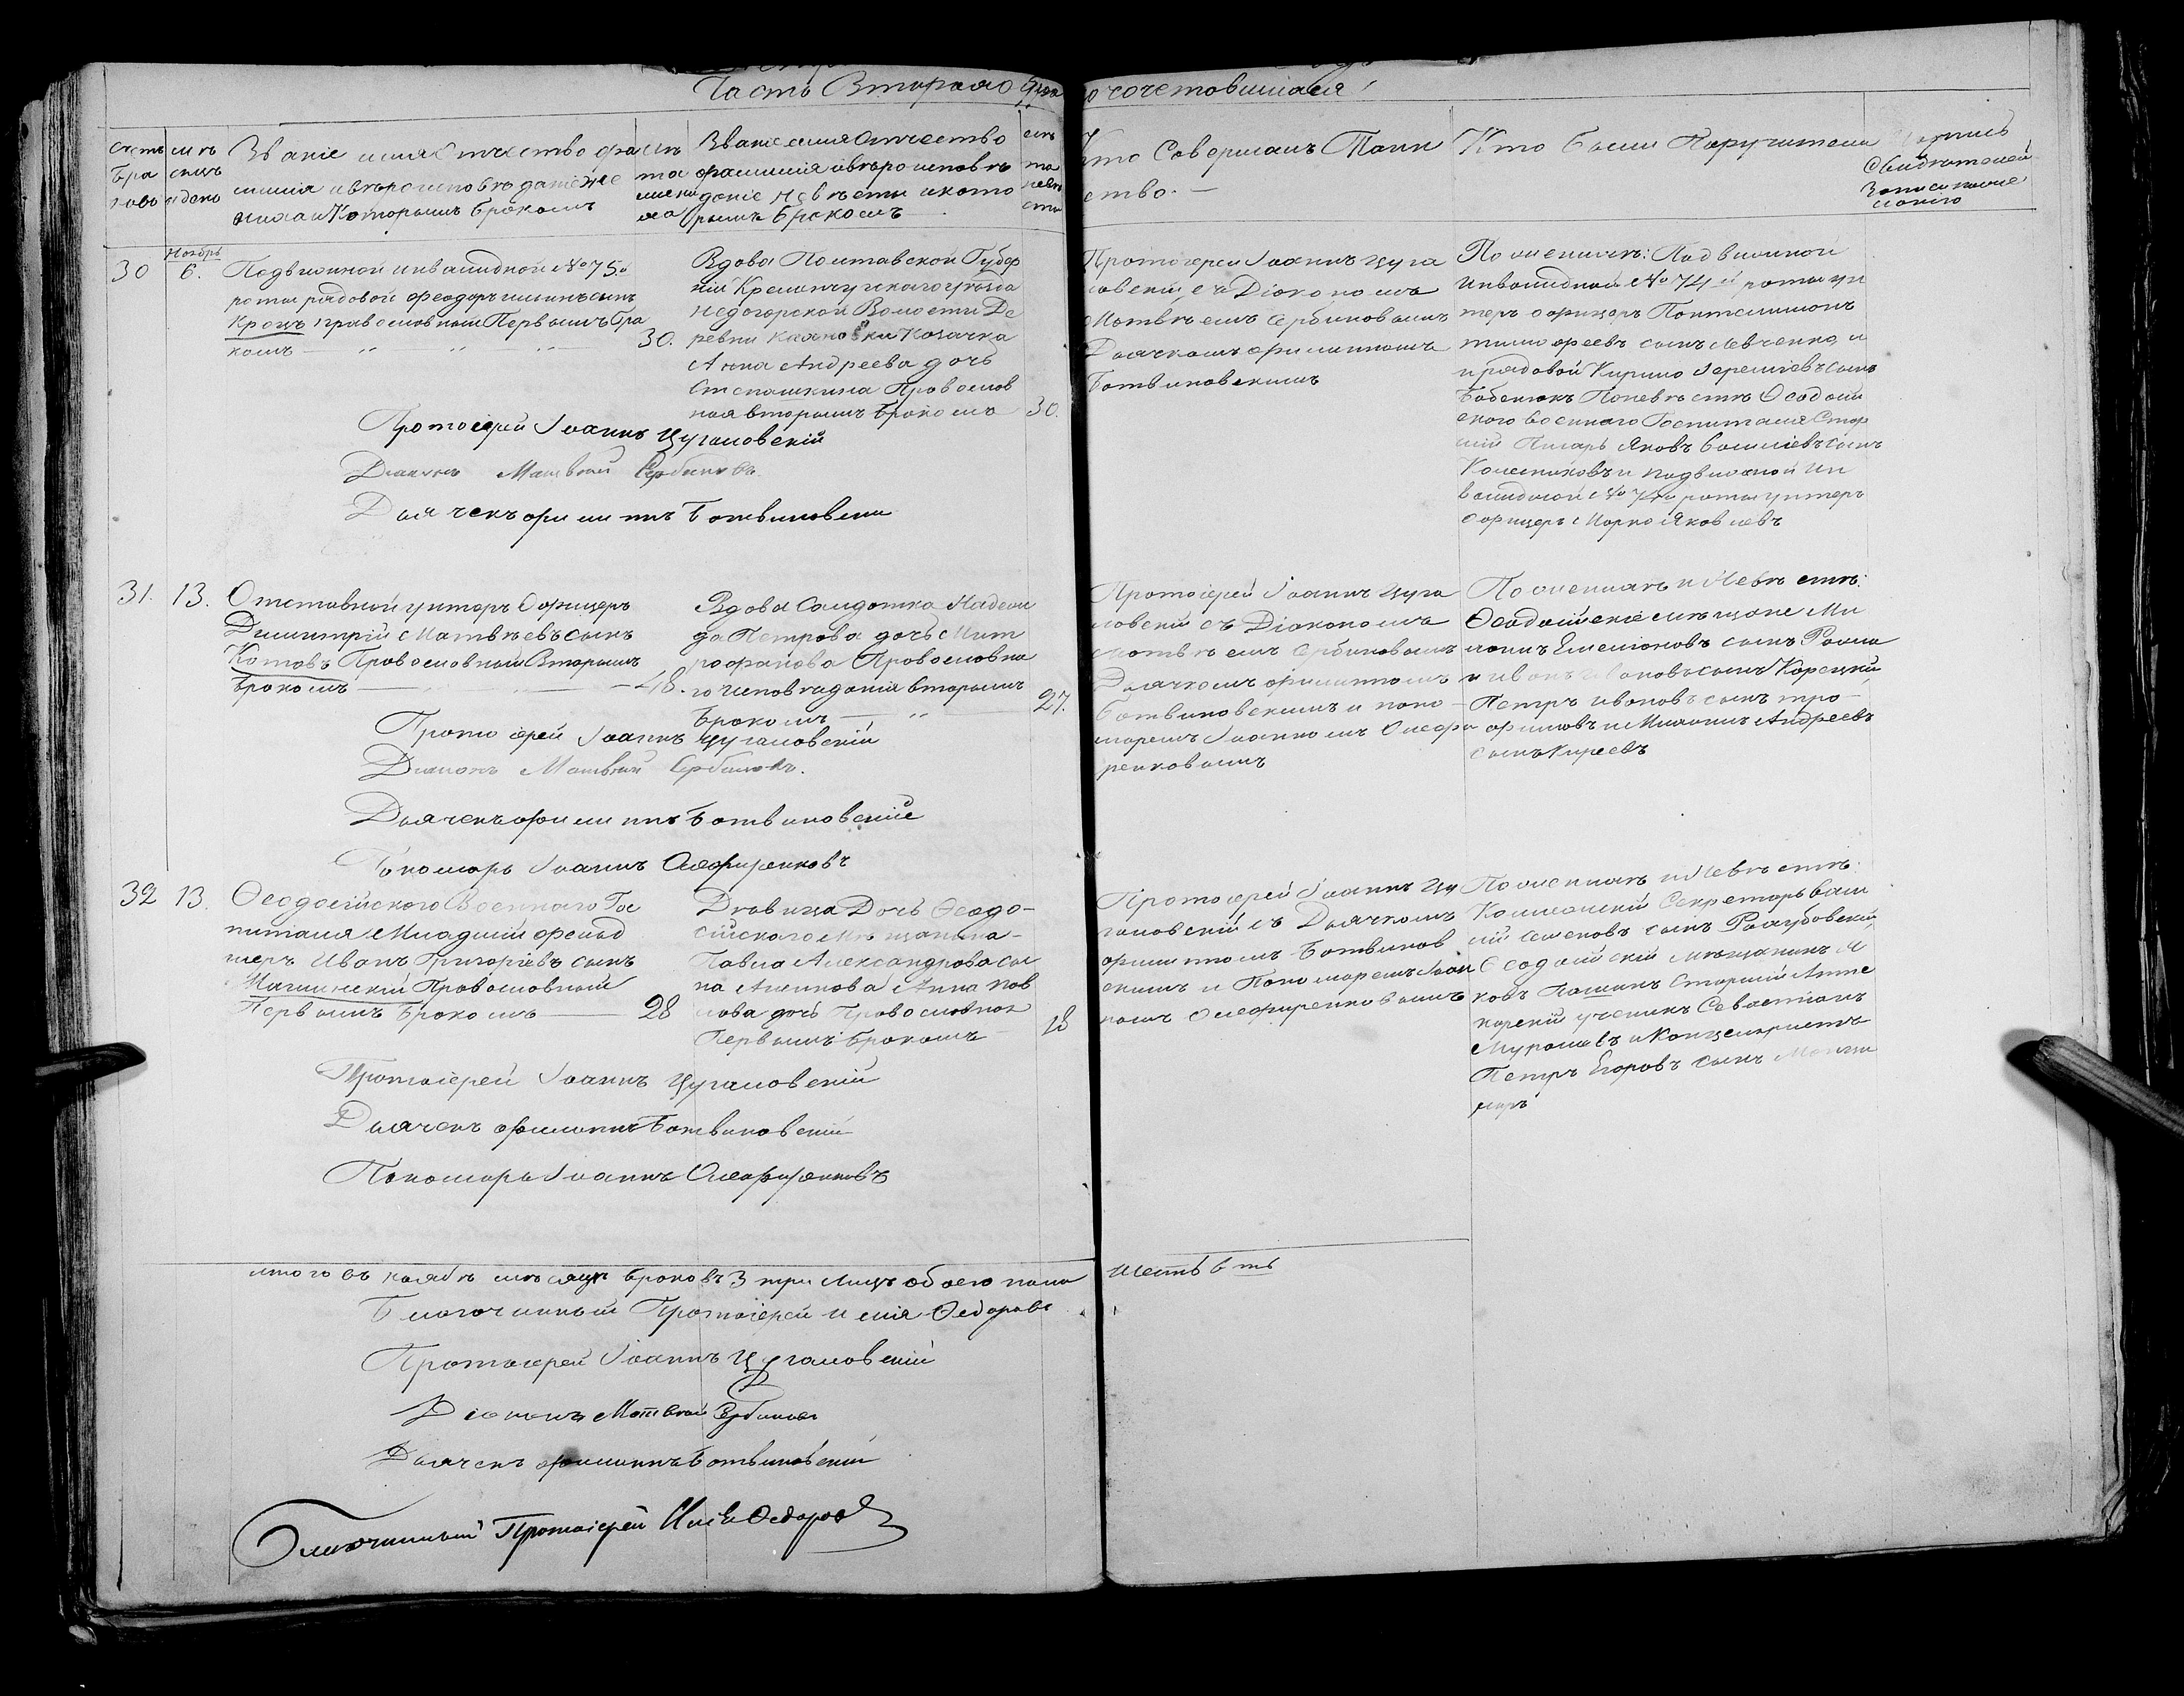 Часть Вторая о брако сочетовшихся
Счетъ браковъ
мѣсяцъ и день
Званіе имя Отчество фа
милія и вѣроисповѣданіе же
ниха и Которымъ бракомъ
лѣта жениха
Званіе имя Отчество
фамилія и вѣроисповѣ
даніе невѣсты и кото
рымъ бракомъ
лѣта невѣсты
Кто Совершалъ Таин
ство.
Кто были Поручители
свидѣтелей
Ноябрь
30
6.
Подвижной инвалидной № 75й
роты рядовой Феодоръ сынъ
православный Первымъ бра
комъ
30.
Вдова Полтавской Губер
ніи Кременчугскаго уѣзда
недогорской Волости Де
ревни Козачка
Анна Андреева дочь
Степашкина Православ
ная вторымъ бракомъ
30.
Протоіерей Іоаннъ Цуга
ловскій съ Діакономъ
Матвѣемъ Сербиновымъ
Дьячкомъ Филиппомъ
Ботвиновскимъ
По женихѣ: Подвижной
инвалидной № 74й роты ун
теръ офицеръ Пантелимонъ
Тимофеевъ сынъ Левченко и
рядовой Кирило Іеремѣевъ сынъ
Бабенюкъ По невѣстѣ Ѳеодосій
скаго военнаго Госпиталя Стар
шій Писарь Яковъ Василіевъ сынъ
Колесниковъ и подвижной Ин
валидной № 74й роты унтеръ
офицеръ Марко Яковлевъ
Протоіерей Іоаннъ Цугаловскій
Діаконъ Матвѣй Сербиновъ
Дьячекъ Филиппъ Ботвиновскій
31.
13.
Отставной унтеръ Офицеръ
Димитрій Матвѣевъ сынъ
Котовъ Православный Вторымъ
бракомъ
48.
Вдова Солдатка Надеж
да Петрова дочь Мит
рофанова Православна
го исповѣданія вторымъ
бракомъ
27.
Протоіерей Іоаннъ Цуга
ловскій съ Діакономъ
Матвѣемъ Сербиновымъ
Дьячкомъ Филиппомъ
Ботвиновскимъ и поно
маремъ Іоанномъ Олефи
ренковымъ
По женихѣ и Невѣстѣ:
Ѳеодосійскіе мѣщане
Емеліоновъ сынъ
и Иванъ Ивановъ сынъ Корецкій
Петръ Ивановъ сынъ Тро
фимовъ и Андреевъ
сынъ Киреевъ
Протоіерей Іоаннъ Цугаловскій
Діаконъ Матвѣй Сербиновъ.
Дьячекъ Филиппъ Ботвиновскій
Пономарь Іоаннъ Олефиренковъ
32
13.
Ѳеодосійскаго Военнаго Гос
питаля Младшій фельд
шеръ Иванъ Григоріевъ сынъ
Православный
Первымъ бракомъ
28
Дѣвица Дочь Ѳеодо
сійскаго мѣщанина
Павла Александрова сы
на Анна Пав
лова дочь Православная
Первымъ бракомъ
18
Протоіерей Іоаннъ Цу
галовскій съ Дьячкомъ
Филиппомъ Ботвинов
скимъ и Пономаремъ Іоан
номъ Олефиренковымъ
По женихѣ и Невѣстѣ:
Секретарь Васи
лій сынъ
Ѳеодосійскій мѣщанинъ
Старшій Апте
карскій ученикъ Севастіанъ
и Канцеляристъ
Петръ Егоровъ сынъ
Протоіерей Іоаннъ Цугаловскій
Дьячекъ Филиппъ Ботвиновскій
Пономарь Іоаннъ Олефиренковъ
итого въ ноябрѣ мѣсяцѣ браковъ 3 три Лицъ обоего пола шесть 6 ть
Благочинный Протоіерей Илія Ѳедоровъ
Протоіерей Іоаннъ Цугаловскій
Діаконъ Матвѣй Сербиновъ
Дьячекъ Филиппъ Ботвиновскій
Благочинный Протоіерей Илія Ѳедоровъ